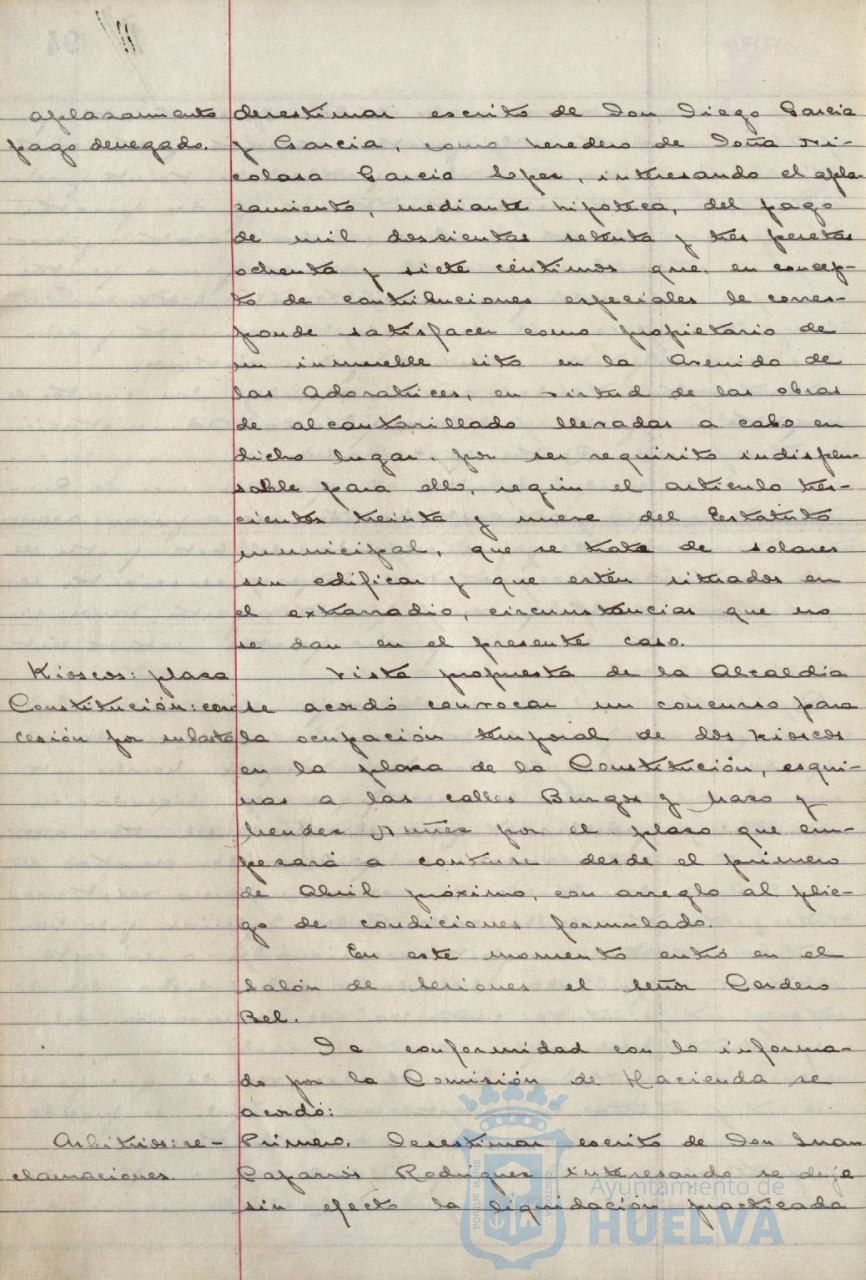 aplazamiento
pago denegado.
desestimar escrito de Don Diego Garcia
y Garcia, como heredero de Doña Ni-
colasa Garcia Lopez, interesando el apla-
zamiento, mediante hipoteca, del pago
de mil doscientas setenta y tres pesetas
ochenta y siete céntimos que, en concep-
to de contribuciones especiales le corres-
ponde satisfacer como propietario de
un inmueble sito en la Avenida de
las Adoratrices, en virtud de las obras
de alcantarillado llevadas a cabo en
dicho lugar, por ser requisito indispen-
sable para ello, según el artículo tres-
cientos treinta y nueve del Estatuto
municipal, que se trate de solares
sin edificar y que estén situados en
el extrarradio, circunstancias que no
se dan en el presente caso.
Kioscos: plaza
Constitución: con
cesión por subasta
Vista propuesta de la Alcaldía
se acordó convocar un concurso para
la ocupación temporal de dos kioscos
en la plaza de la Constitución, esqui-
nas a las calles Burgos y Mazo y
Mendez Nuñez por el plazo que em-
pezará a contarse desde el primero
de Abril próximo, con arreglo al plie-
go de condiciones formulado.
En este momento entró en el
Salón de Sesiones el Señor Cordero
Bel.
De conformidad con lo informa-
do por la Comisión de Hacienda se
acordó:
Arbitrios: re-
clamaciones.
Primero. Desestimar escrito de Don Juan
Caparrós Rodriguez interesando se deje
sin efecto la liquidación practicada
Ayuntamiento de
HUELVA